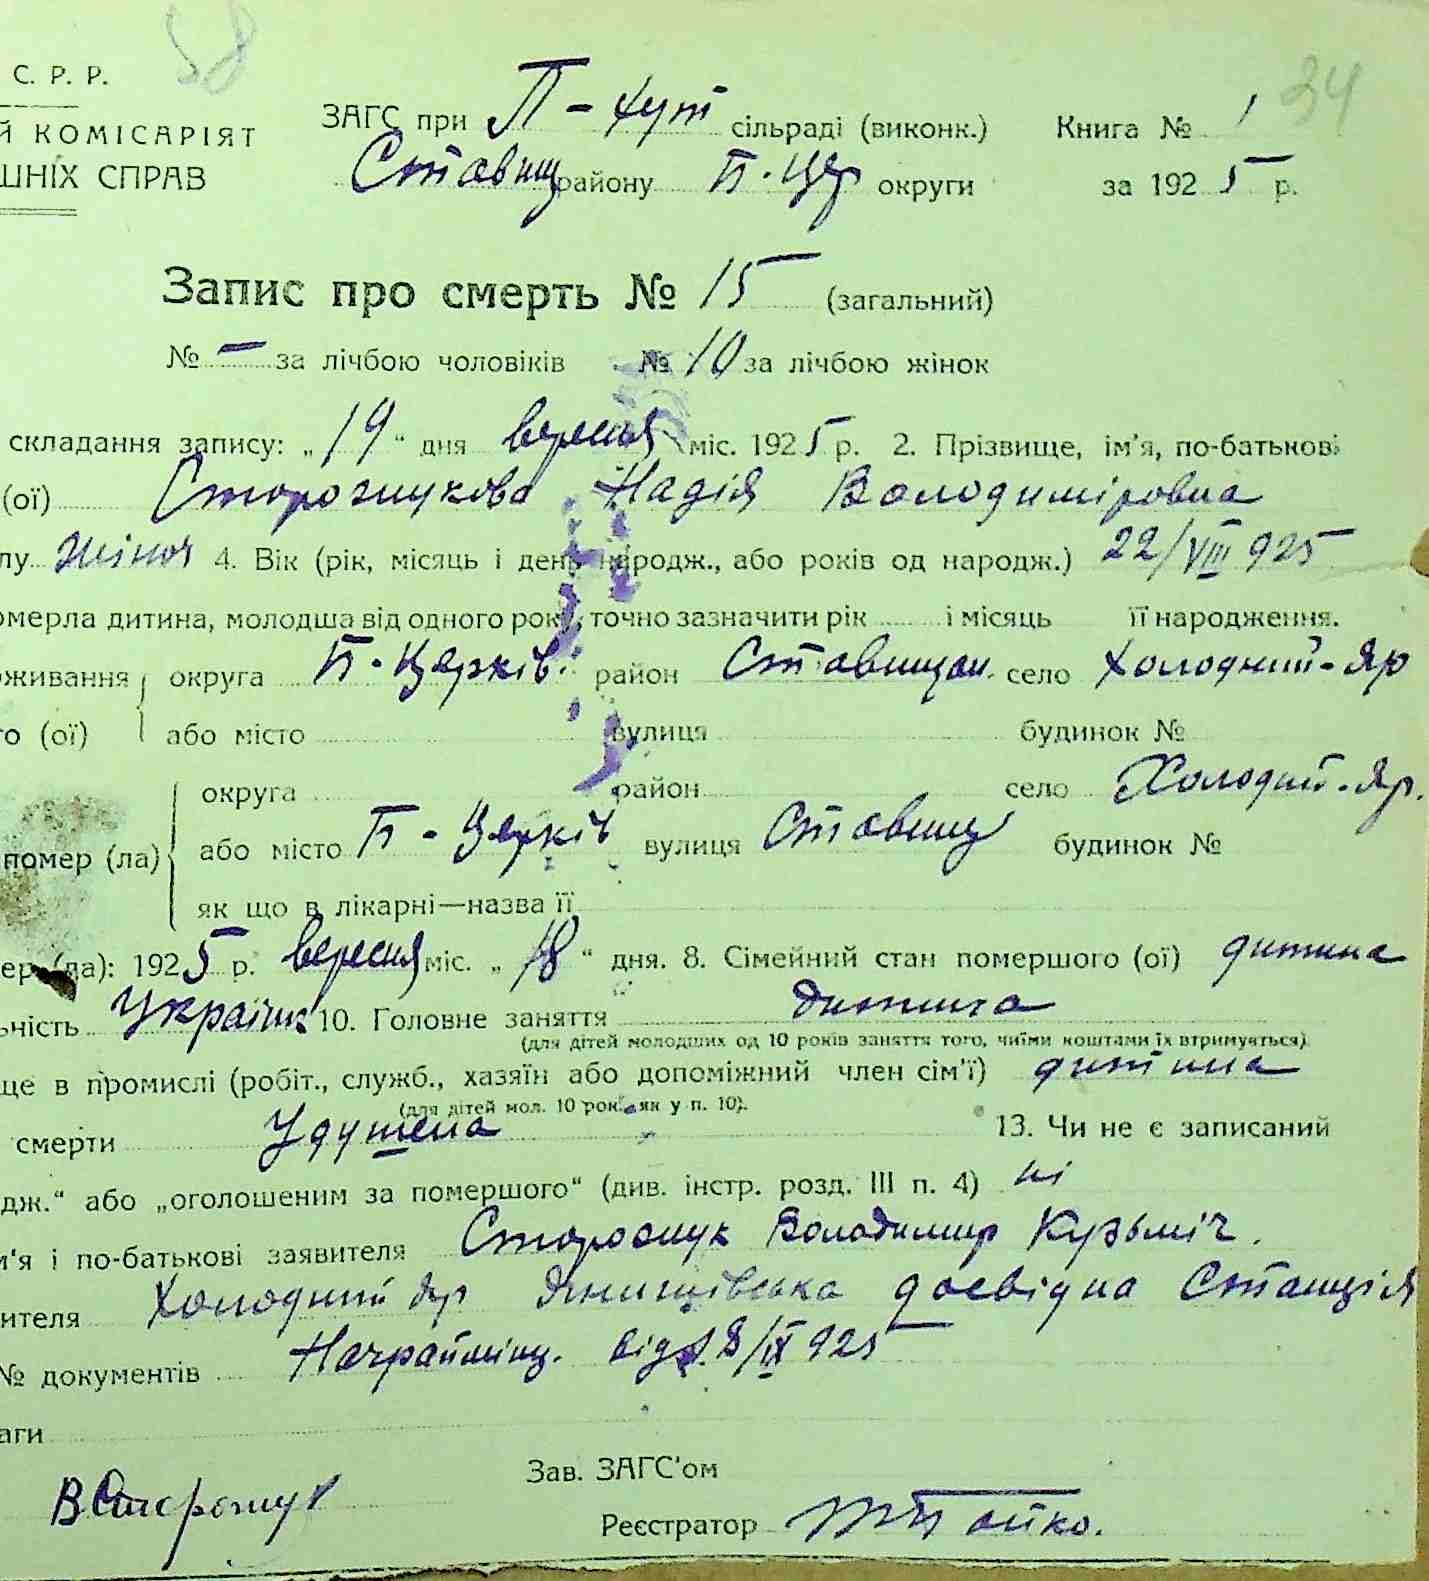 58
34
С. Р. Р.
ЗАГС при П - Хут сільраді (виконк.) Книга № 1
Й КОМІСАРІЯТ
Ставищ району Б. Цер округи за 1925 р.
ШНІХ СПРАВ
Запис про смерть № 15 (загальний)
№ — за лічбою чоловіків № 10 за лічбою жінок
складання запису: „19“ дня вересня міс. 1925 р. 2. Прізвище, ім'я, по-батькові
(ої) Сторожукова Надія Володиміровна
лу жіноч 4. Вік (рік, місяць і день народж., або років од народж.) 22/VIII 925
омерла дитина, молодша від одного року, точно зазначити рік і місяць її народження.
оживання округа Б. Церків. район Ставищан. село Холодний-Яр
го (ої) або місто вулиця будинок №
округа район село Холодний-Яр.
помер (ла) або місто Б - Церків вулиця Ставищ будинок №
як що в лікарні—назва її
ер (ла): 1925 р. вересня міс. „18“ дня. 8. Сімейний стан помершого (ої) дитина
ьність Українк 10. Головне заняття дитина
(для дітей молодших од 10 років заняття того, чиїми коштами їх втримується)
ще в промислі (робіт., служб., хазяїн або допоміжний член сім'ї) дитина
(для дітей мол. 10 рок. як у п. 10).
смерти Удушена 13. Чи не є записаний
дж.“ або „оголошеним за помершого“ (див. інстр. розд. III п. 4) ні
м'я і по-батькові заявителя Сторожук Володимир Кузьміч.
ителя Холодний Яр досвідна Станція
№ документів від 18/IX 925
аги
Зав. ЗАГС'ом
В Сторожук
Реєстратор